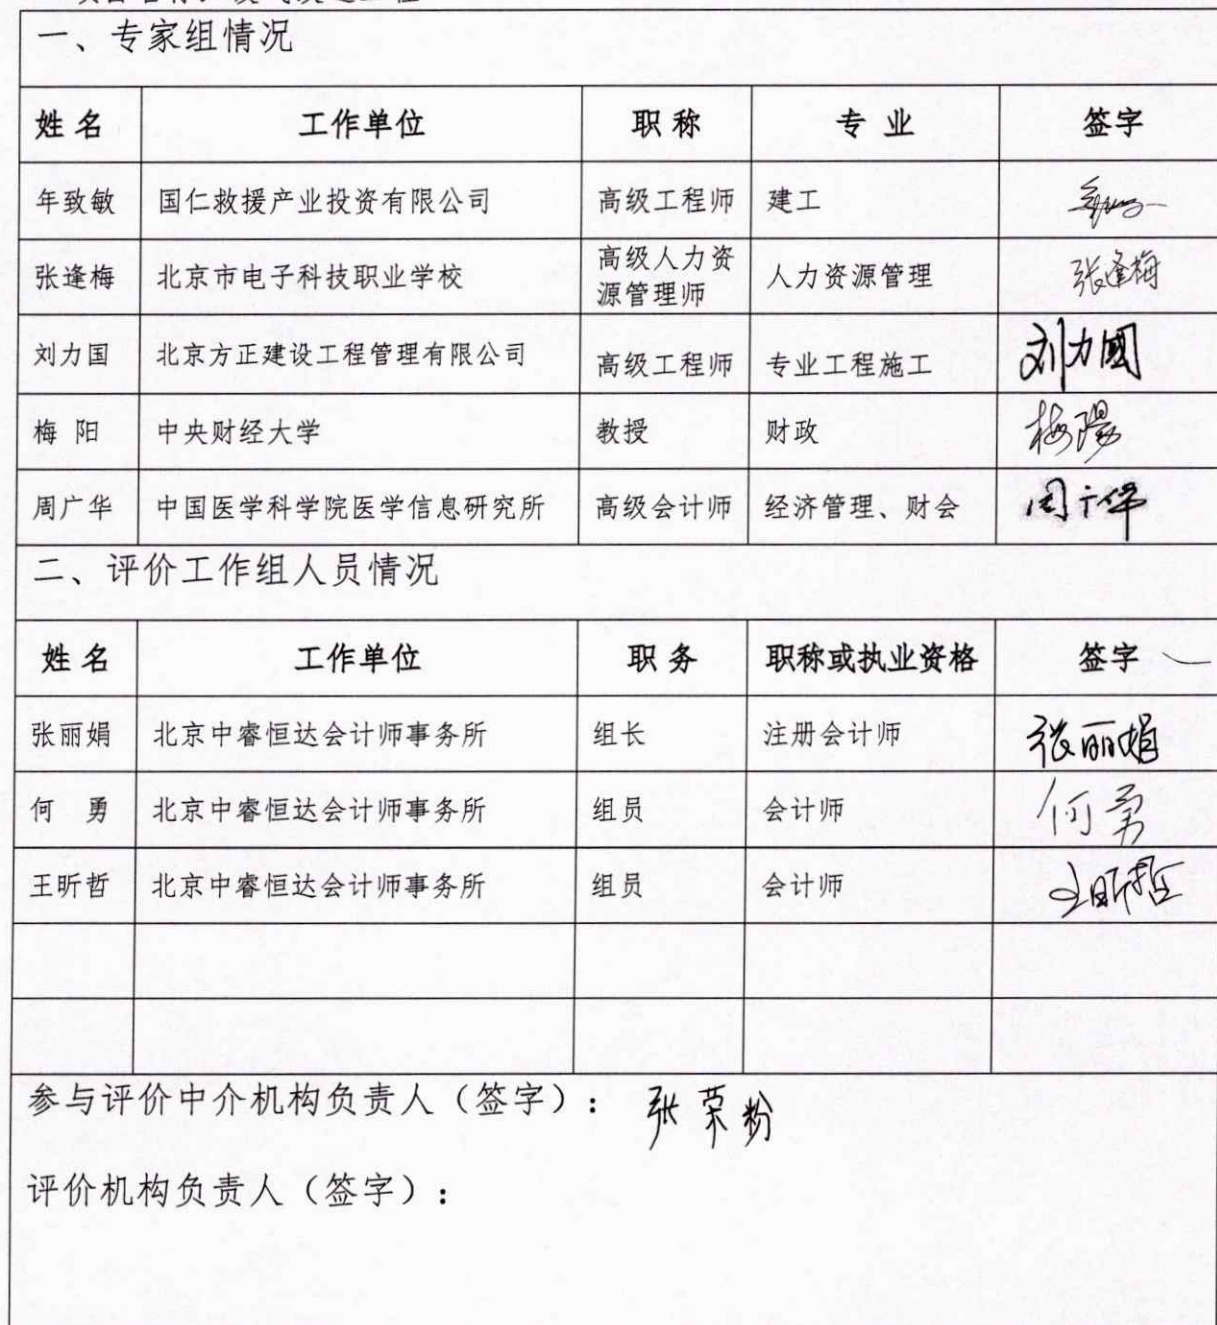 一、专家组情况
姓名 工作单位 职称 专业 签字
年致敏 国仁救援产业投资有限公司 高级工程师 建工
张逢梅 北京市电子科技职业学校 高级人力资源管理师 人力资源管理 张逢梅
刘力国 北京方正建设工程管理有限公司 高级工程师 专业工程施工 刘力國
梅阳 中央财经大学 教授 财政 梅陽
周广华 中国医学科学院医学信息研究所 高级会计师 经济管理、财会 周广华
二、评价工作组人员情况
姓名 工作单位 职务 职称或执业资格 签字
张丽娟 北京中睿恒达会计师事务所 组长 注册会计师 张丽娟
何勇 北京中睿恒达会计师事务所 组员 会计师 何勇
王昕哲 北京中睿恒达会计师事务所 组员 会计师 王昕哲
参与评价中介机构负责人（签字）： 张荣粉
评价机构负责人（签字）：